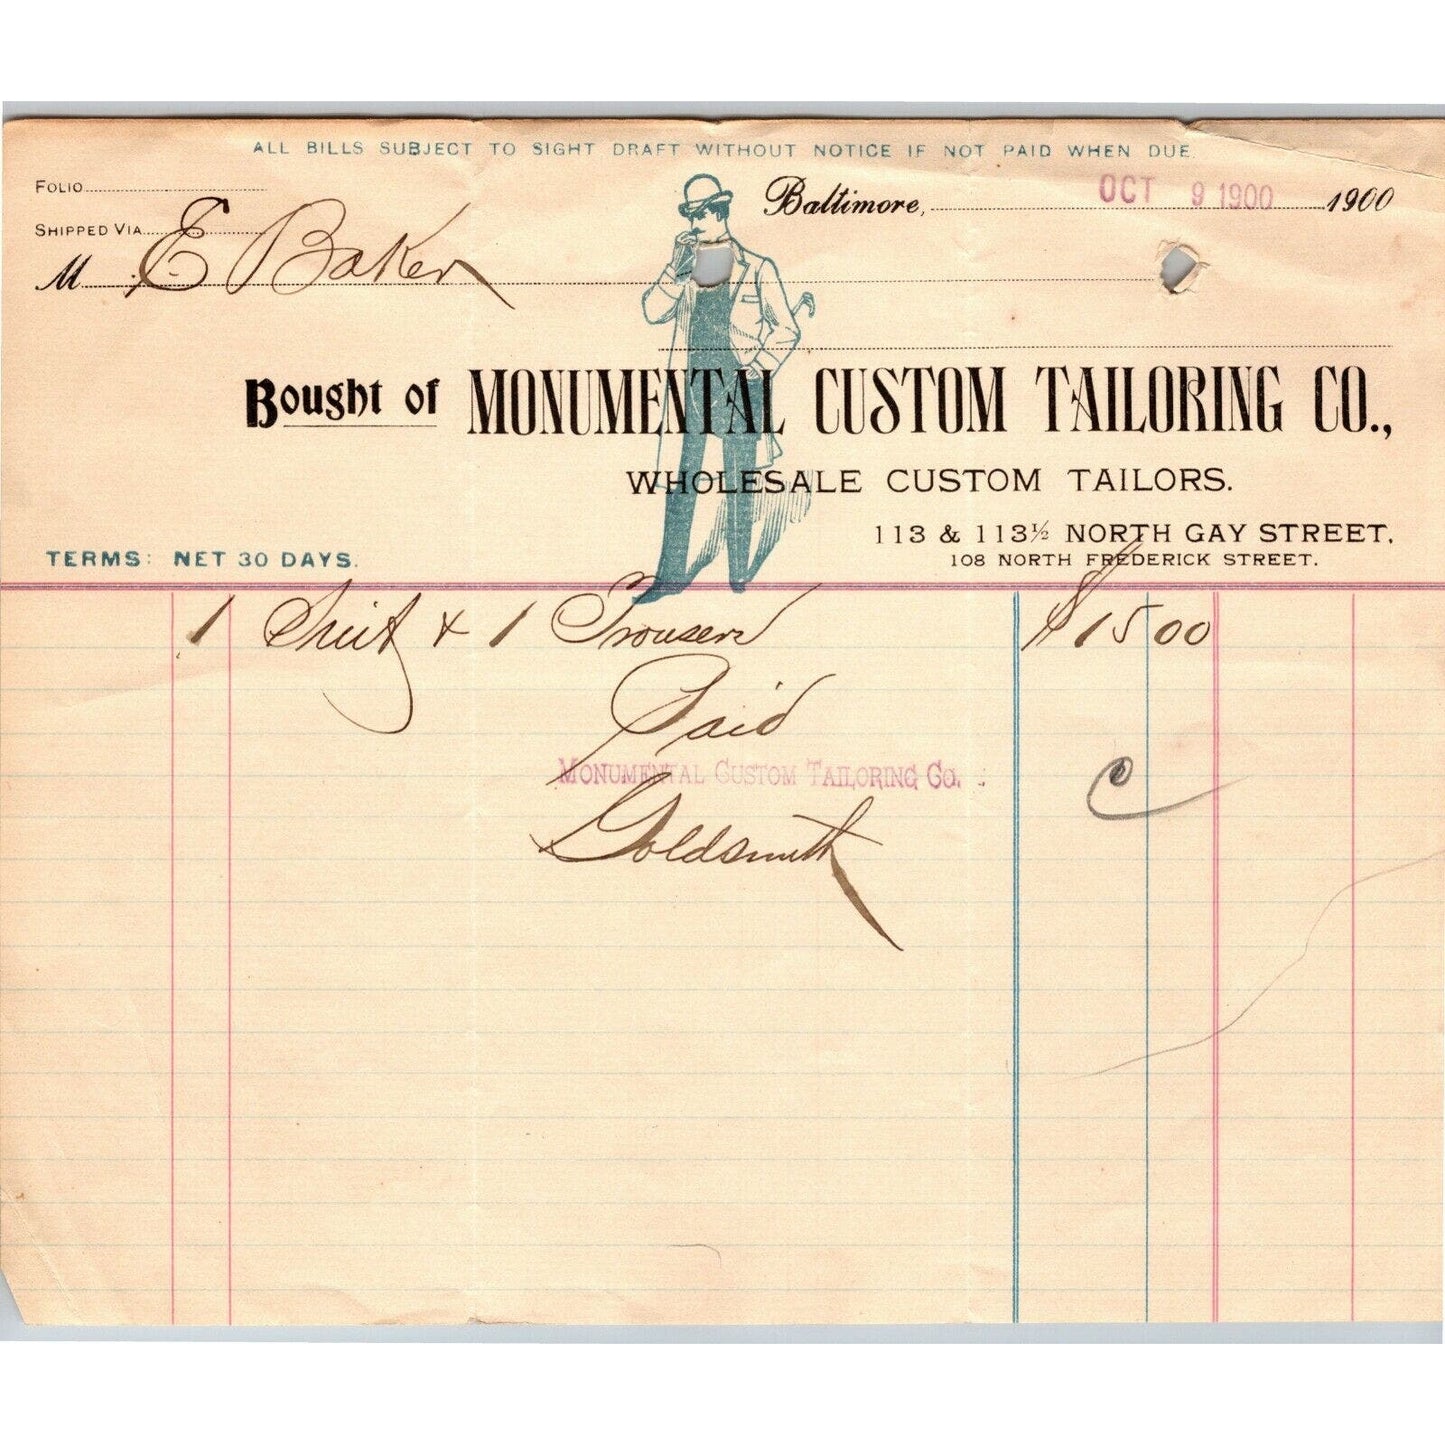 ALL BILLS SUBJECT TO SIGHT DRAFT WITHOUT NOTICE IF NOT PAID WHEN DUE.
FOLIO
Baltimore, OCT 9 1900 1900
SHIPPED VIA
M E Baker
Bought of MONUMENTAL CUSTOM TAILORING CO.,
WHOLESALE CUSTOM TAILORS.
113 & 113½ NORTH GAY STREET.
108 NORTH FREDERICK STREET.
TERMS: NET 30 DAYS.
1 Suit & 1 Trousers $15 00
Paid
MONUMENTAL CUSTOM TAILORING CO.
Goldsmith